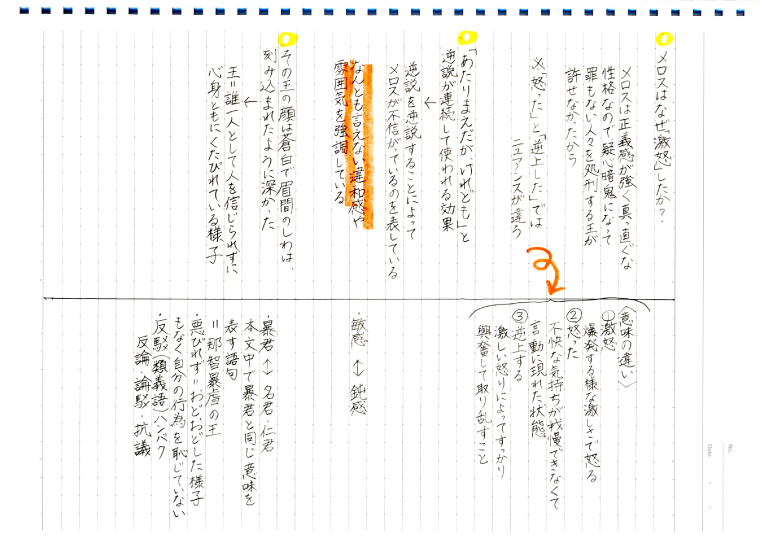 メロスはなぜ「激怒」したか?
メロスは正義感が強く真っ直ぐな
性格なので疑心暗鬼になって
罪もない人々を処刑する王が
許せなかったから
※「怒った」と「逆上した」では
ニュアンスが違う
「あたりまえだが、けれども」と
逆説が連続して使われる効果
↓
逆説を逆説することによって
メロスが不信がているのを表している
なんとも言えない違和感や
雰囲気を強調している
その王の顔は蒼白で眉間のしわは、
刻み込まれたように深かった
↓
王=誰一人として人を信じられずに
心身ともにくたびれている様子
〈意味の違い〉
①激怒
爆発する様な激しさで怒る
②怒った
不快な気持ちが我慢できなくて
言動に現れた状態
③逆上する
激しい怒りによってすっかり
興奮して取り乱すこと
・敏感 ↔ 鈍感
・暴君 ↔ 名君・仁君
本文中で暴君と同じ意味を
表す語句
=邪智暴虐の王
・悪びれず=わどおどした様子
もなく自分の行為を恥じていない
・反駁(類義語)ハンバク
反論 論駁 抗議
No.
Date